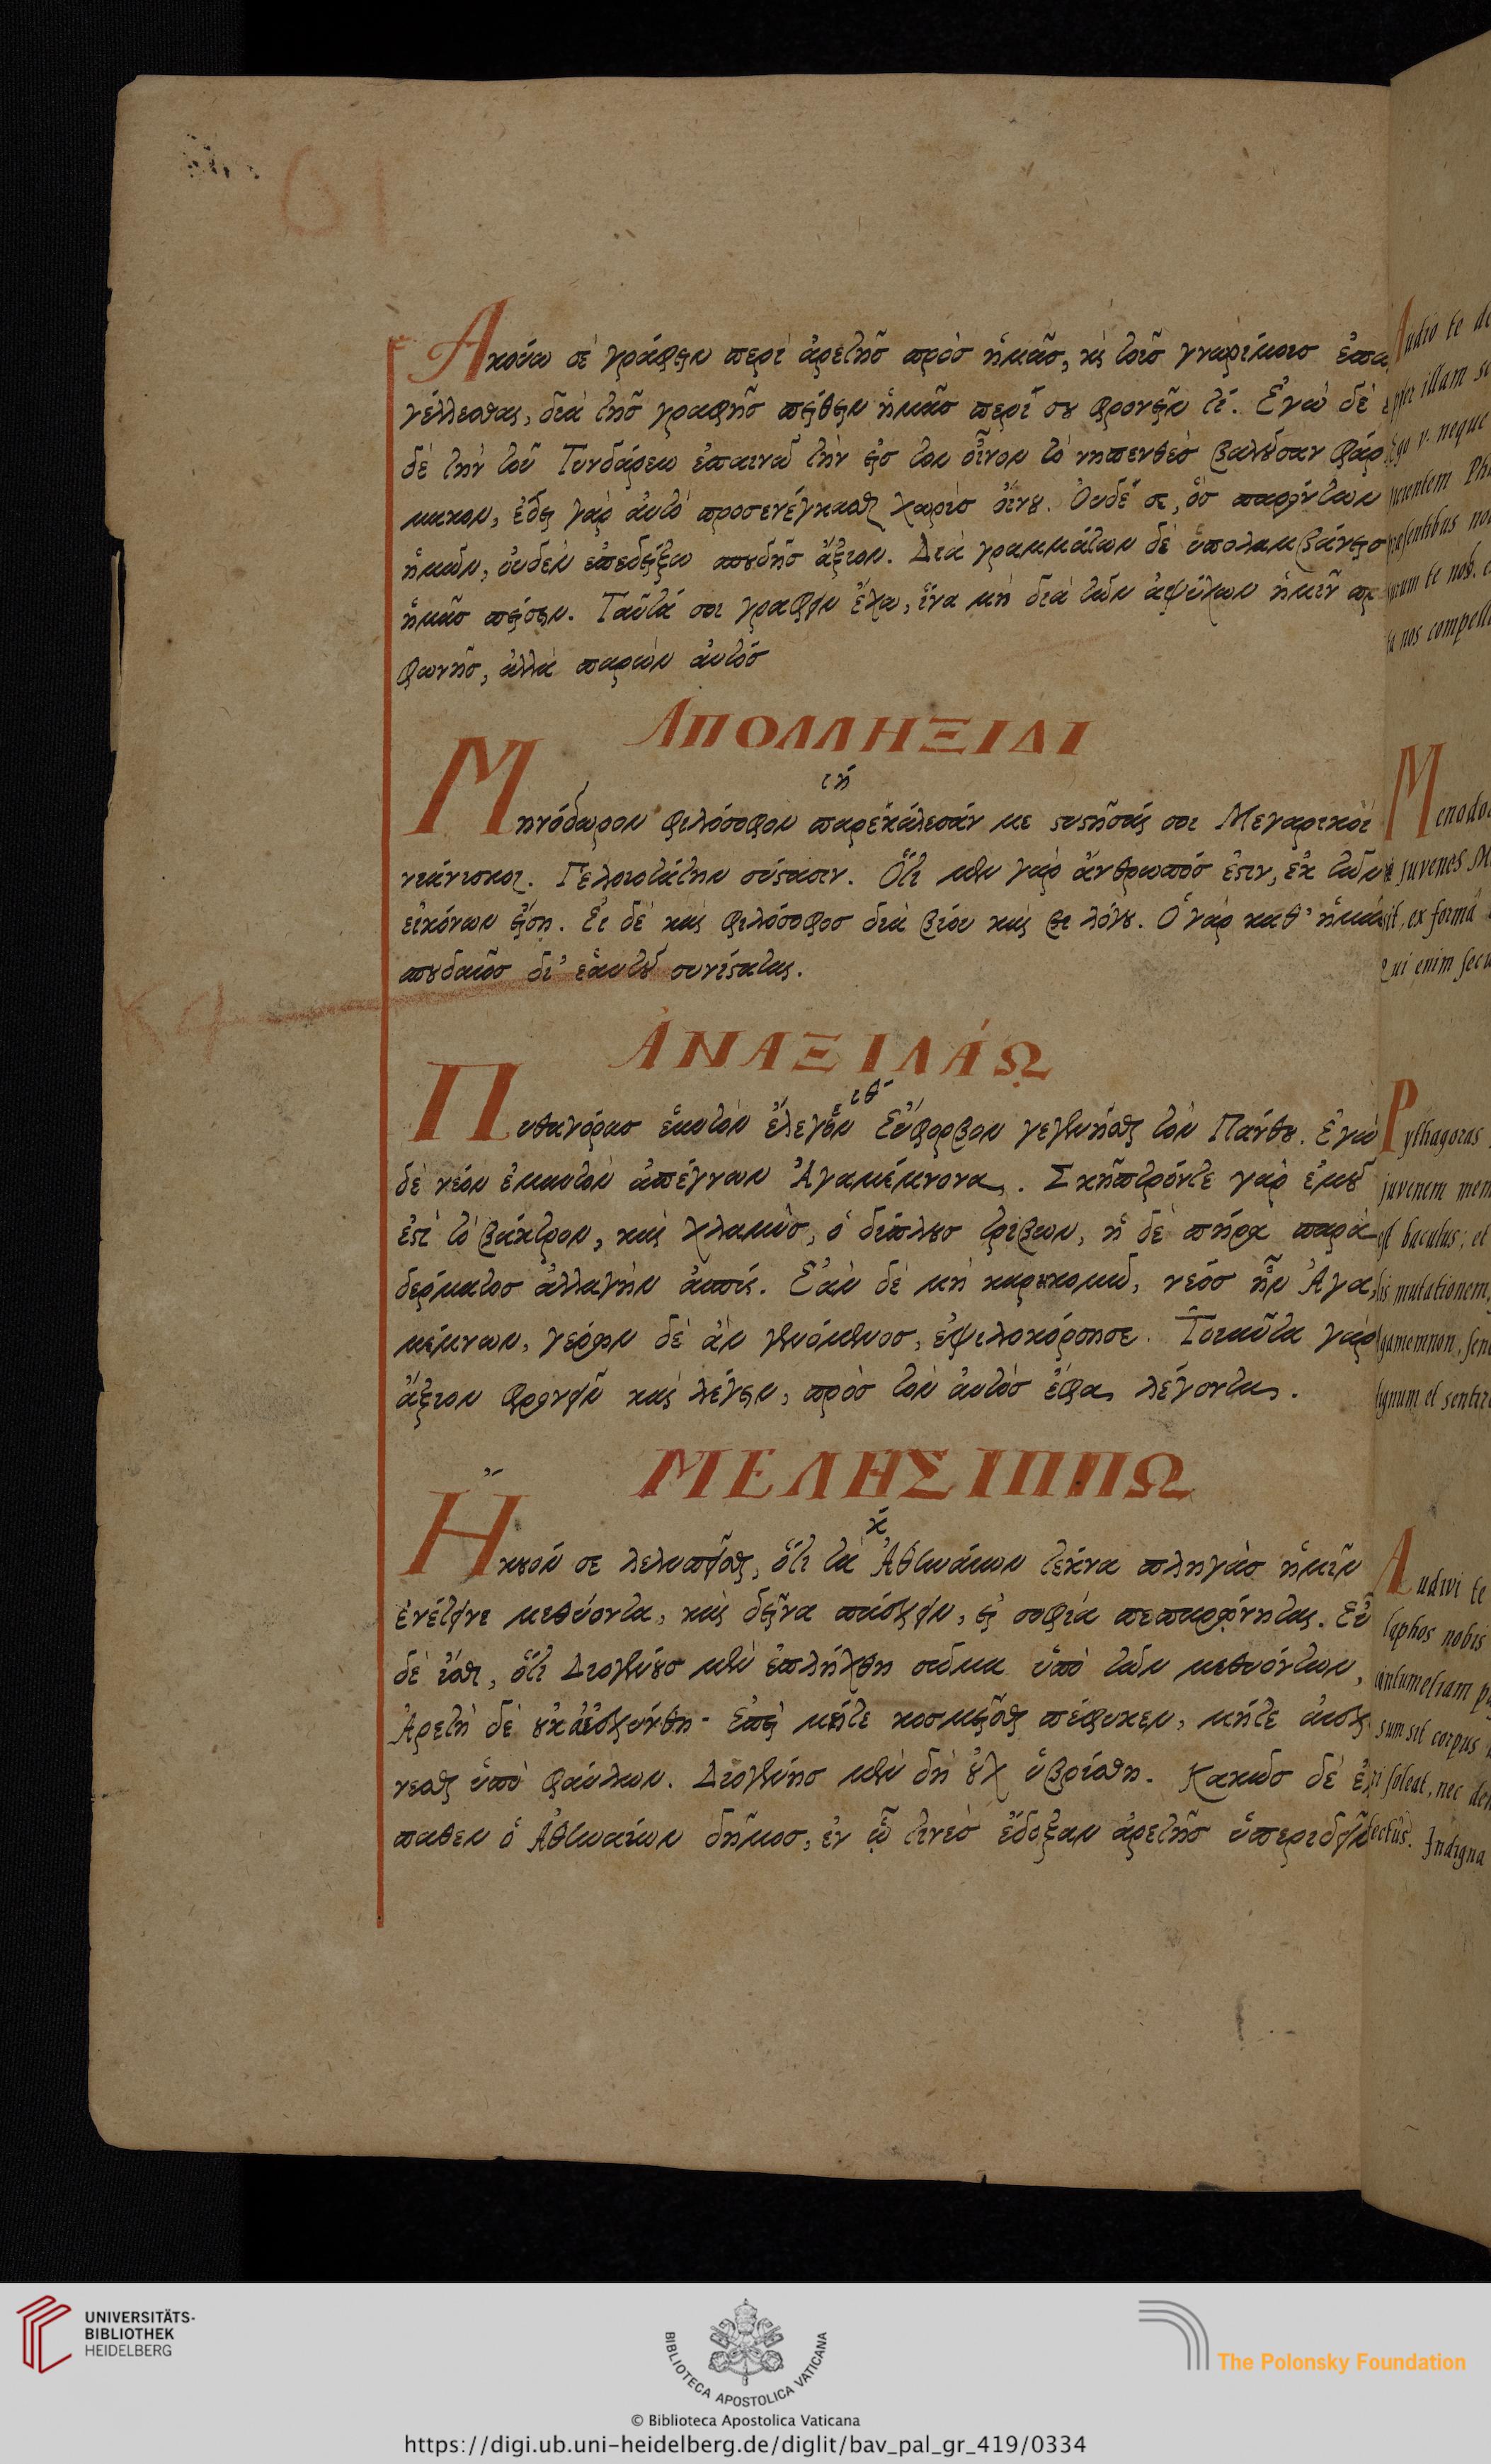 61
Ακούω σὲ γράφειν περὶ ἀρετῆς πρὸς ἡμᾶς, κὶ τοῖς γνωρίμοις ἐπα
γέλλεσθαι, διὰ τῆς γραφῆς πείθειν ἡμᾶς περί σου φρονεῖν τί. Ἐγὼ δὲ
δὲ τὴν τοῦ Τυνδάρεω ἐπαινῶ τὴν εἰς τὸν οἶνον τὸ νηπενθὲς βαλοῦσαν φάρ
μακον, ἔδει γὰρ ἀυτὸ προσενέγκασθαι χωρὶς οἴνου. Ουδέ σε, ὃς παρόντων
ἡμῶν, ουδὲν ἐπεδείξω σπουδῆς ἄξιον. Διὰ γραμμάτων δὲ ὑπολαμβάνεις
ἡμᾶς πείσειν. Ταῦτά σοι γράφειν ἔχω, ἵνα μὴ διὰ τῶν ἀψύχων ἡμῖν προ
φωνῇς, ἀλλὰ παρὼν ἀυτός
ἈΠΟΛΛΗΞΙΔΙ
ιή
Μηνόδωρον φιλόσοφον παρεκάλεσάν με συστῆσαί σοι Μεγαρικοὶ
νεανίσκοι. Γελοιοτάτην σύστασιν. Ὅτι μὲν γὰρ ἄνθρωπός ἐστιν, ἐκ τῶν
εἰκόνων εἴσῃ. Εἰ δὲ καὶ φιλόσοφος διὰ βίου καὶ λόγου. Ὁ γὰρ καθ' ἡμᾶς
σπουδαῖος δι' ἑαυτοῦ συνίσταται.
ἈΝΑΞΙΛΆΩ
ιθ
Πυθαγόρας ἑαυτὸν ἔλεγεν Εὔφορβον γεγενῆσθαι τὸν Πάνθου. Ἐγὼ
δὲ νέον ἐμαυτὸν ἀπέγνων Ἀγαμέμνονα. Σκῆπτρόντε γὰρ ἐμοῦ
ἐστὶ τὸ βάκτρον, καὶ χλαμὺς, ὁ διπλοῦς τρίβων, ἡ δὲ πήρα παρὰ
δέρματος ἀλλαγὴν ἀσπίς. Εὰν δὲ μὴ καρηκομῶ, νεός ἦν Ἀγα
μέμνων, γέρων δὲ ἂν γενόμενος, ἐψιλοκόρσησε. Τοιαῦτα γὰρ
ἄξιον φρονεῖν καὶ λέγειν, πρὸς τὸν ἀυτὸς ἔφα λέγοντα.
ΜΕΛΗΣΙΠΠΩ
κ
Ἤκουόν σε λελυπῆσθαι, ὅτι τὰ Ἀθηναίων τέκνα πληγὰς ἡμῖν
ἐνέτεινε μεθύοντα, καὶ δεῖνα πάσχειν, εἰ σοφία πεπαρῴνηται. Εὖ
δὲ ἴσθι, ὅτι Διογένους μὲν ἐπλήχθη σῶμα ὑπὸ τῶν μεθυόντων,
Ἀρετὴ δὲ οὐκ ᾐσχύνθη. Ἐπεὶ μήτε κοσμεῖσθαι πέφυκεν, μήτε ἀισχύ
νεσθαι ὑπὸ φαύλων. Διογένης μὲν δὴ οὐχ ὑβρίσθη. Κακῶς δὲ ἔ
παθεν ὁ Ἀθηναίων δῆμος, ἐν ᾧ τινὲς ἔδοξαν ἀρετῆς ὑπεριδεῖν
Audio te de
Ego v. neque
Menodo
juvenes M
sit, ex forma
Qui enim secu
Pythagoras
juvenem mem
est baculus, et
mutationem,
gamemnon, sen
Audivi te
nobis
sum sit corpus
soleat, nec
Indigna
UNIVERSITÄTS-
BIBLIOTHEK
HEIDELBERG
BIBLIOTECA APOSTOLICA VATICANA
The Polonsky Foundation
© Biblioteca Apostolica Vaticana
https://digi.ub.uni-heidelberg.de/diglit/bav_pal_gr_419/0334